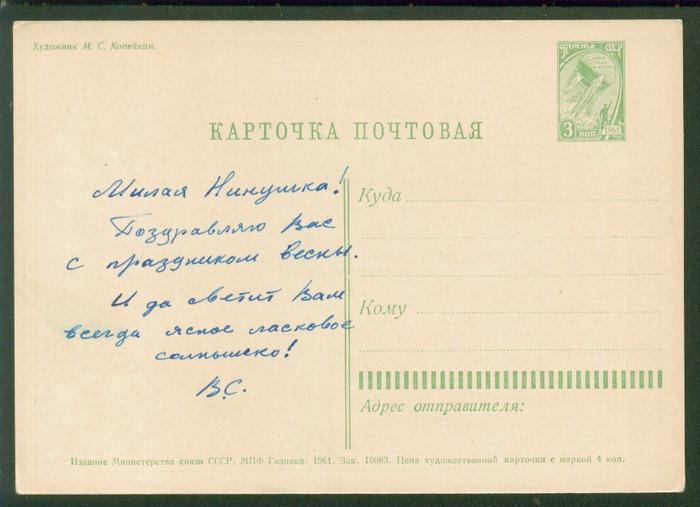 Художник М. С. Копейкин.
Почта СССР
3 коп
1961
КАРТОЧКА ПОЧТОВАЯ
Милая Нинушка!
Поздравляю Вас
с праздником весны.
И да светит Вам
всегда ясное ласковое
солнышко!
В.С.
Куда
Кому
Адрес отправителя:
Издание Министерства связи СССР. МПФ Гознака. 1961. Зак. 16083. Цена художественной карточки с маркой 4 коп.